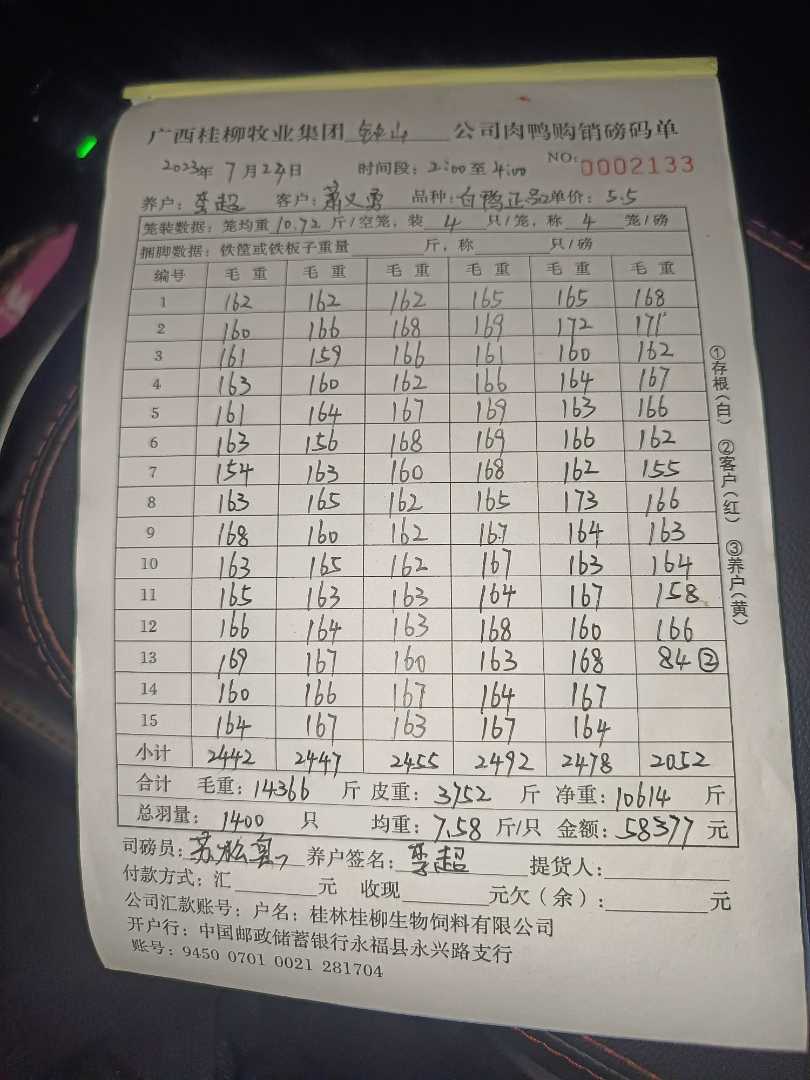 广西桂柳牧业集团钟山公司肉鸭购销磅码单
2023年7月27日 时间段：2:00至4:00 NO: 0002133
养户：李超 客户：萧义勇 品种：白鸭正品 单价：5.5
笼装数据：笼均重10.72斤/空笼，装4只/笼，称4笼/磅
捆脚数据：铁筐或铁板子重量 斤，称 只/磅
编号 毛重 毛重 毛重 毛重 毛重 毛重
1 162 162 162 165 165 168
2 160 166 168 169 172 171
3 161 159 166 161 160 162
4 163 160 162 166 164 167
5 161 164 167 169 163 166
6 163 156 168 169 166 162
7 154 163 160 168 162 155
8 163 165 162 165 173 166
9 168 160 162 167 164 163
10 163 165 162 167 163 164
11 165 163 163 164 167 158
12 166 164 163 168 160 166
13 169 167 160 163 168 84②
14 160 166 167 164 167
15 164 167 163 167 164
小计 2442 2447 2455 2492 2478 2052
合计 毛重：14366 斤 皮重：3752 斤 净重：10614 斤
总羽量：1400 只 均重：7.58 斤/只 金额：58377 元
司磅员：苏 养户签名：李超 提货人：
付款方式：汇 元 收现 元欠（余）： 元
公司汇款账号：户名：桂林桂柳生物饲料有限公司
开户行：中国邮政储蓄银行永福县永兴路支行
账号：9450 0701 0021 281704
①存根（白） ②客户（红） ③养户（黄）